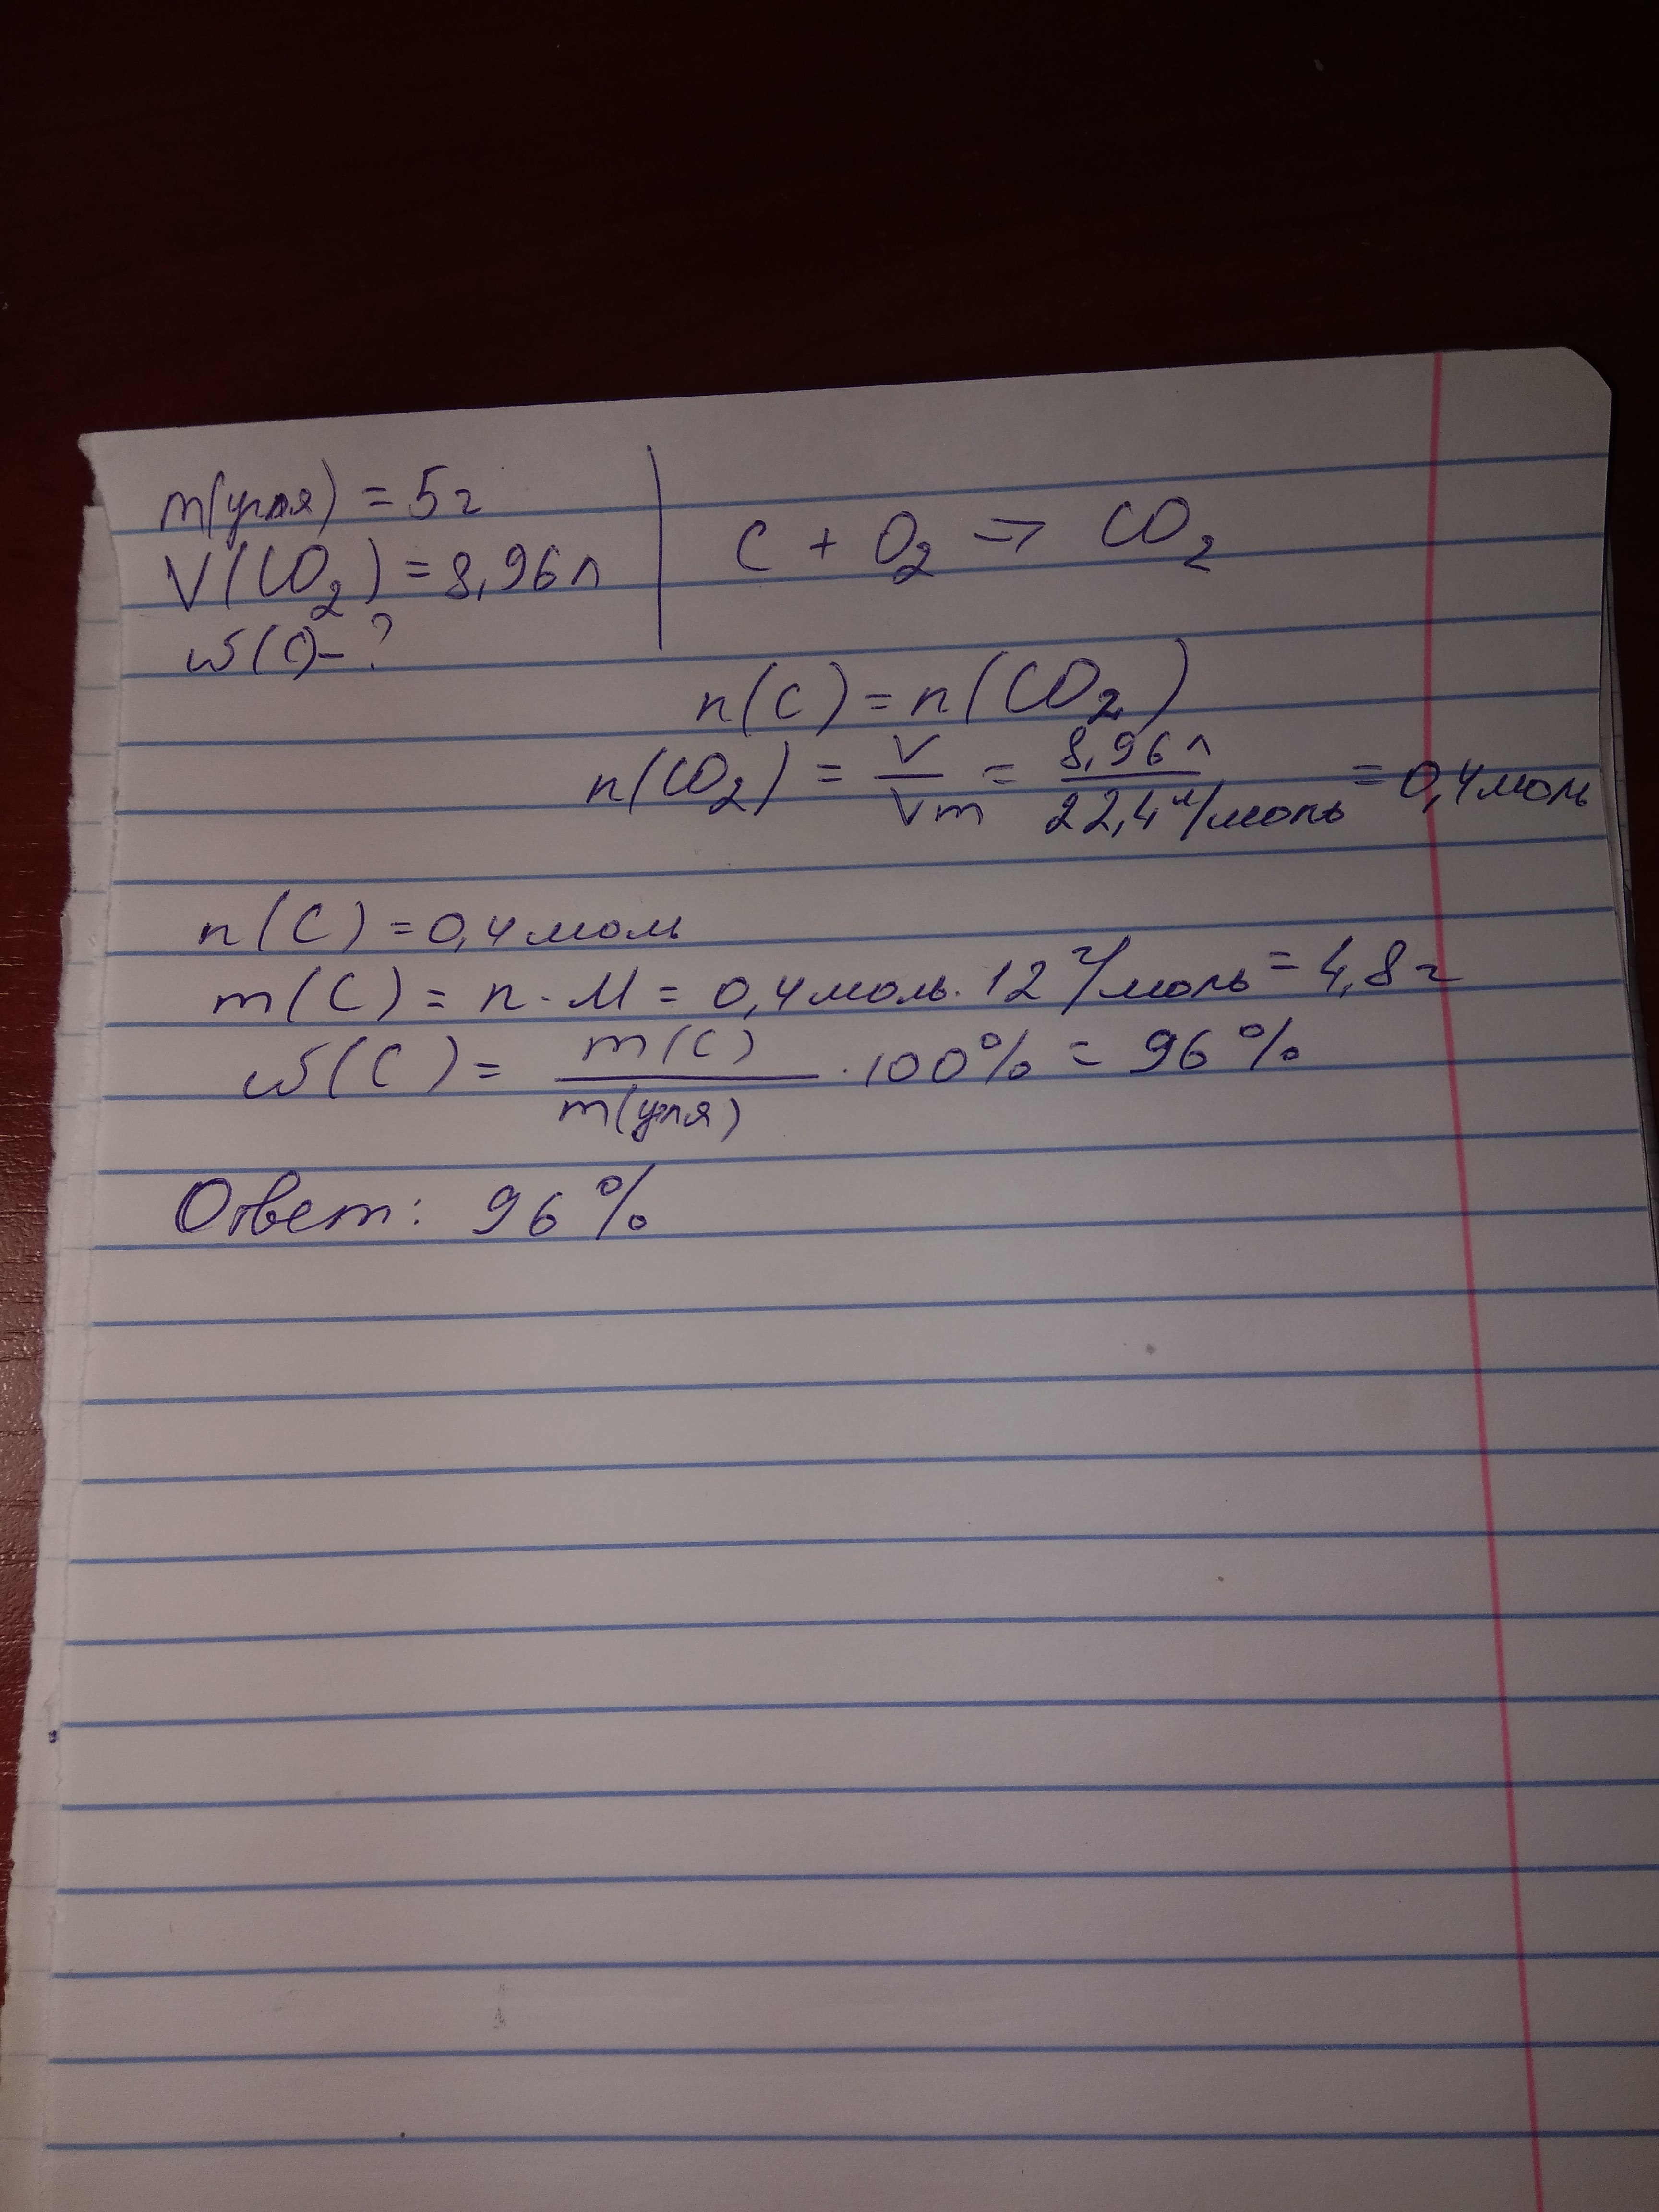 m(угля) = 5г
V(CO₂) = 8,96л
ω(C) – ?
C + O₂ => CO₂
n(C) = n(CO₂)
n(CO₂) = V/Vm = 8,96л/22,4л/моль = 0,4моль
n(C) = 0,4моль
m(C) = n · M = 0,4моль · 12г/моль = 4,8г
ω(C) = m(C)/m(угля) · 100% = 96%
Ответ: 96%